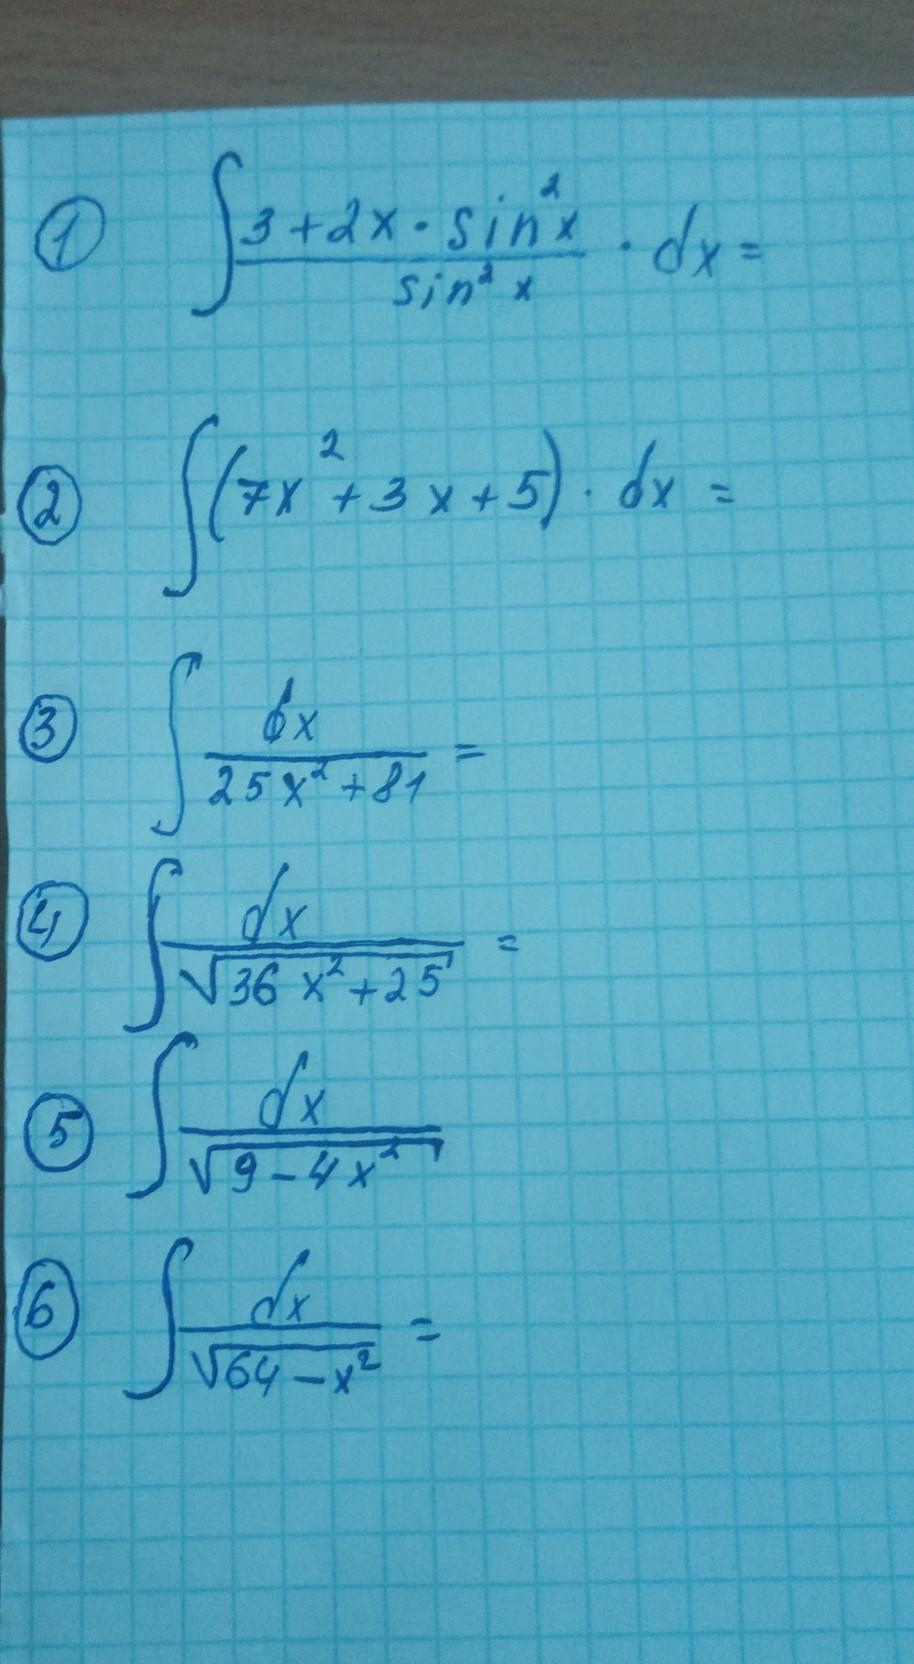 ① ∫ (3 + 2x · sin²x)/(sin²x) · dx =
② ∫ (7x² + 3x + 5) · dx =
③ ∫ dx/(25x² + 81) =
④ ∫ dx/√(36x² + 25) =
⑤ ∫ dx/√(9 − 4x²)
⑥ ∫ dx/√(64 − x²) =